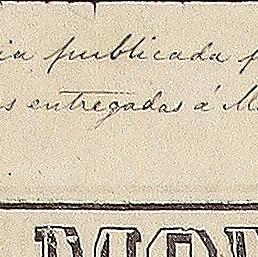 ia publicada p
s entregadas á M
MON